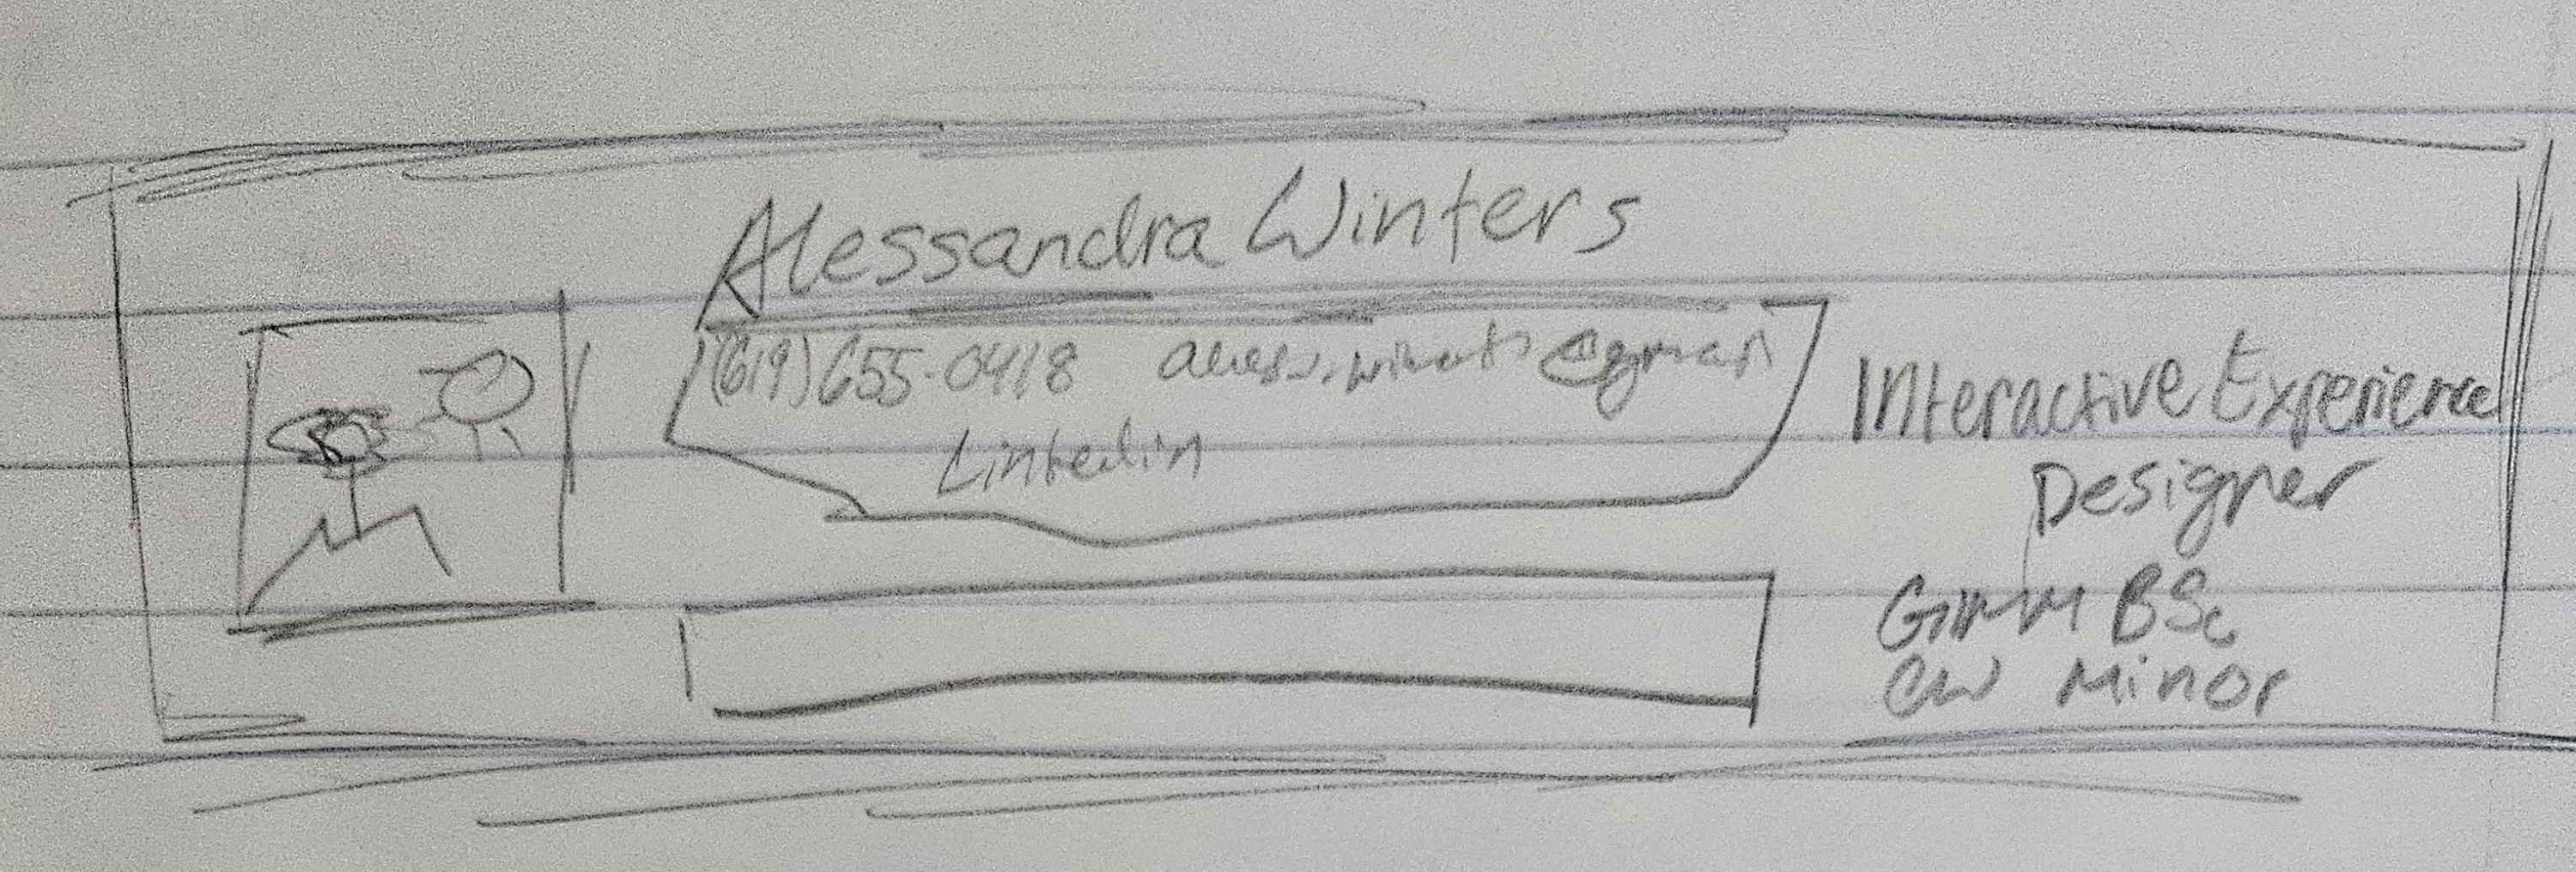 Alessandra Winters
(619) 655-0418 @gmail
Linkedin
Interactive Experience
Designer
GIMM BSc
CW Minor